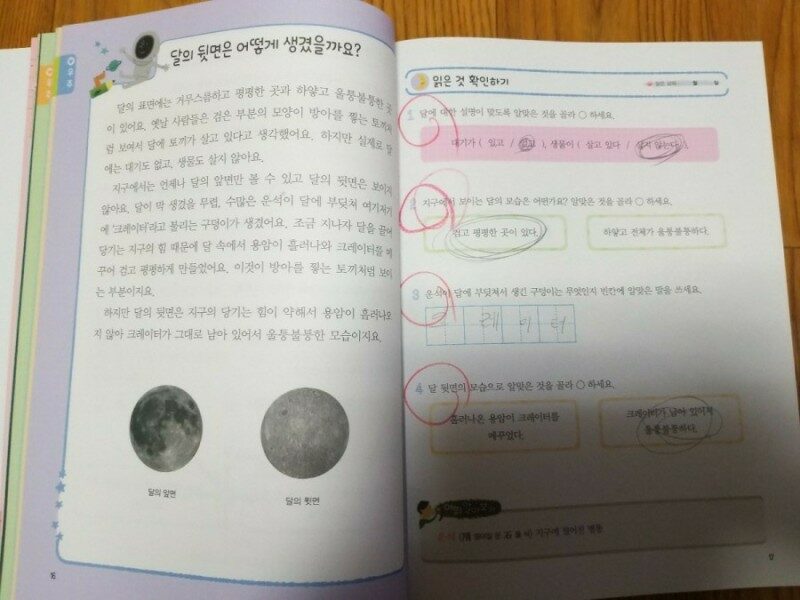 우주
달의 뒷면은 어떻게 생겼을까요?
달의 표면에는 거무스름하고 평평한 곳과 하얗고 울퉁불퉁한 곳
이 있어요. 옛날 사람들은 검은 부분의 모양이 방아를 찧는 토끼처
럼 보여서 달에 토끼가 살고 있다고 생각했어요. 하지만 실제로 달
에는 대기도 없고, 생물도 살지 않아요.
지구에서는 언제나 달의 앞면만 볼 수 있고 달의 뒷면은 보이지
않아요. 달이 막 생겼을 무렵, 수많은 운석이 달에 부딪쳐 여기저기
에 '크레이터'라고 불리는 구덩이가 생겼어요. 조금 지나자 달을 끌어
당기는 지구의 힘 때문에 달 속에서 용암이 흘러나와 크레이터를 메
꾸어 검고 평평하게 만들었어요. 이것이 방아를 찧는 토끼처럼 보이
는 부분이지요.
하지만 달의 뒷면은 지구의 당기는 힘이 약해서 용암이 흘러나오
지 않아 크레이터가 그대로 남아 있어서 울퉁불퉁한 모습이지요.
달의 앞면
달의 뒷면
16
읽은 것 확인하기
읽은 날짜 월 일
1 달에 대한 설명이 맞도록 알맞은 것을 골라 ○ 하세요.
대기가 ( 있고 / 없고 ), 생물이 ( 살고 있다 / 살지 않는다 ).
2 지구에서 보이는 달의 모습은 어떤가요? 알맞은 것을 골라 ○ 하세요.
검고 평평한 곳이 있다.
하얗고 전체가 울퉁불퉁하다.
3 운석이 달에 부딪쳐서 생긴 구덩이는 무엇인지 빈칸에 알맞은 말을 쓰세요.
크 레 이 터
4 달 뒷면의 모습으로 알맞은 것을 골라 ○ 하세요.
흘러나온 용암이 크레이터를
메꾸었다.
크레이터가 남아 있어서
울퉁불퉁하다.
운석 (隕 떨어질 운 石 돌 석) 지구에 떨어진 별똥
17